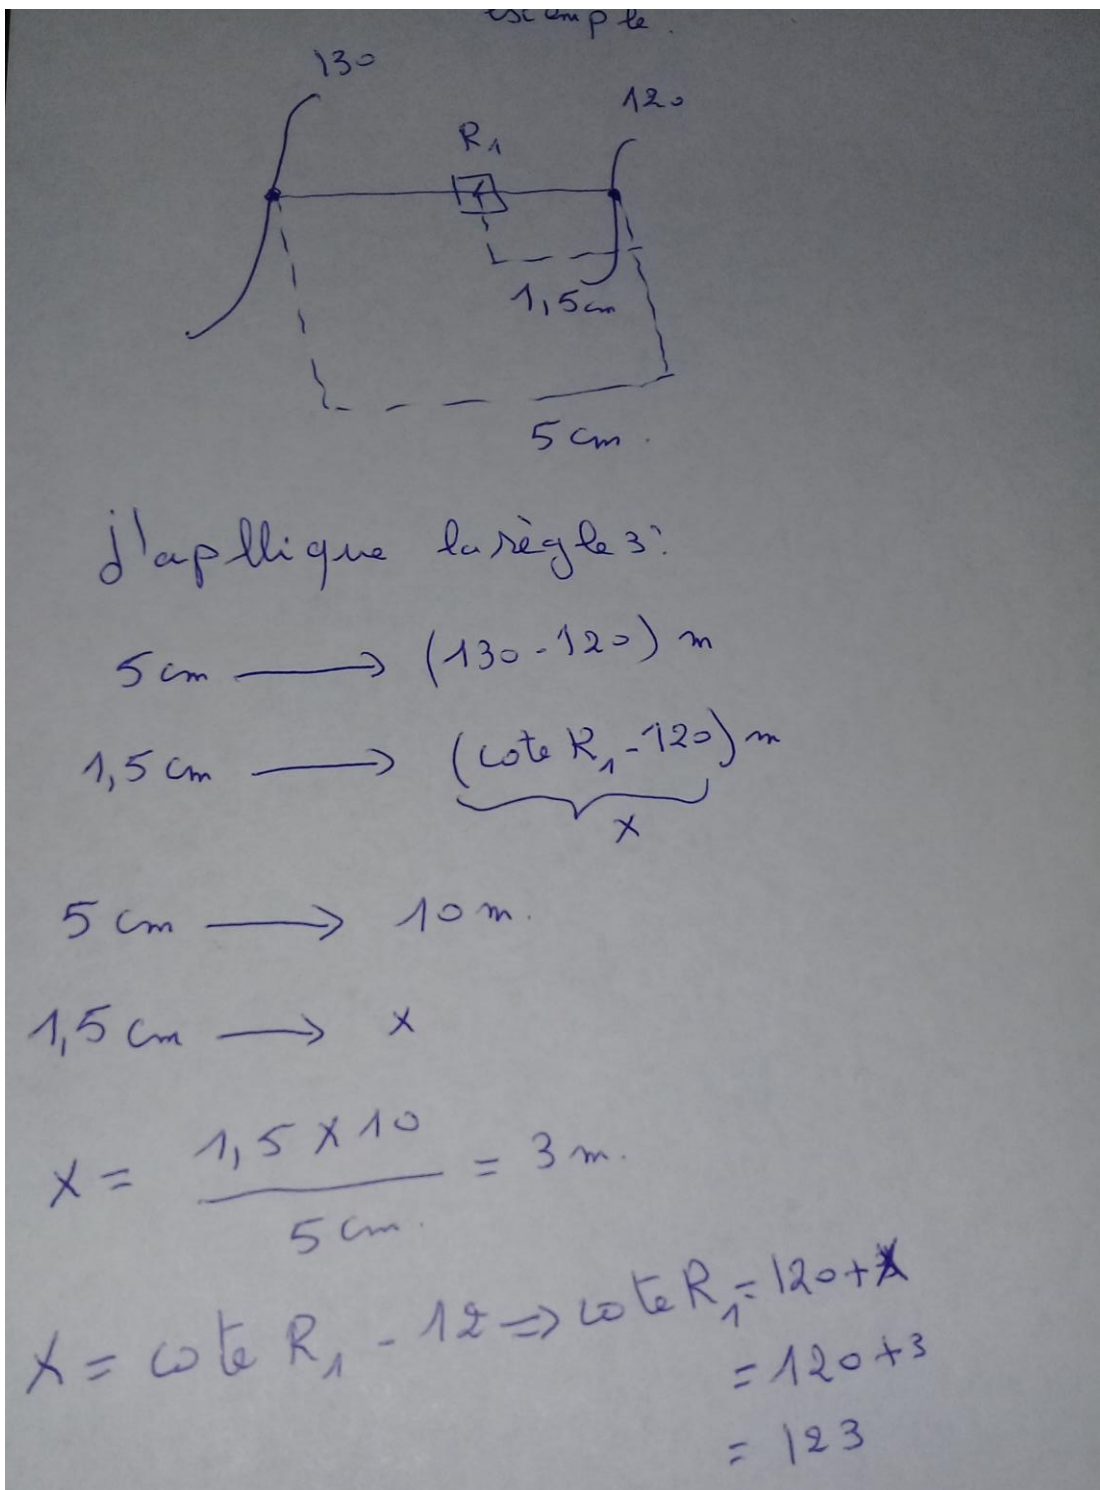 exemple.
130
120
R1
1,5cm
5 cm.
j'apllique la règle 3:
5 cm ⟶ (130-120) m
1,5 cm ⟶ (cote R1-120) m
x
5 cm ⟶ 10 m.
1,5 cm ⟶ x
x = 1,5 x 10 / 5 cm. = 3 m.
x = cote R1 - 12 => cote R1 = 120+x
= 120+3
= 123